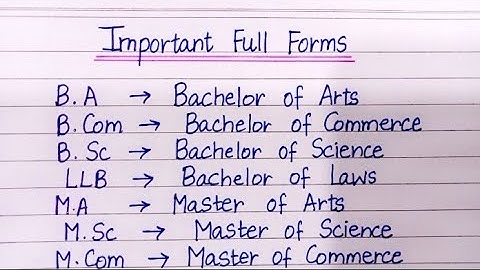 Important Full Forms
B.A → Bachelor of Arts
B.Com → Bachelor of Commerce
B.Sc → Bachelor of Science
LLB → Bachelor of Laws
M.A → Master of Arts
M.Sc → Master of Science
M.Com → Master of Commerce